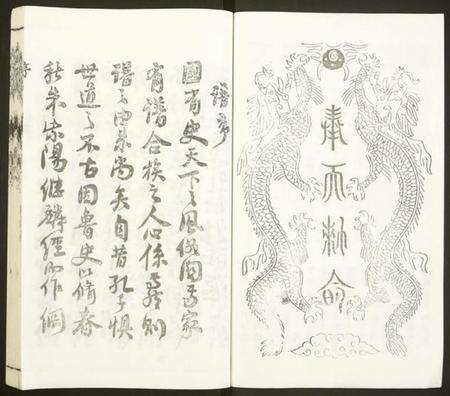 奉天勅命
譜序
國有史天下之風俗因焉家
有譜合族之人心係焉然則
譜之由來尚矣自昔孔子懼
世道之不古因魯史以脩春
秋朱紫陽繼麟經而作綱